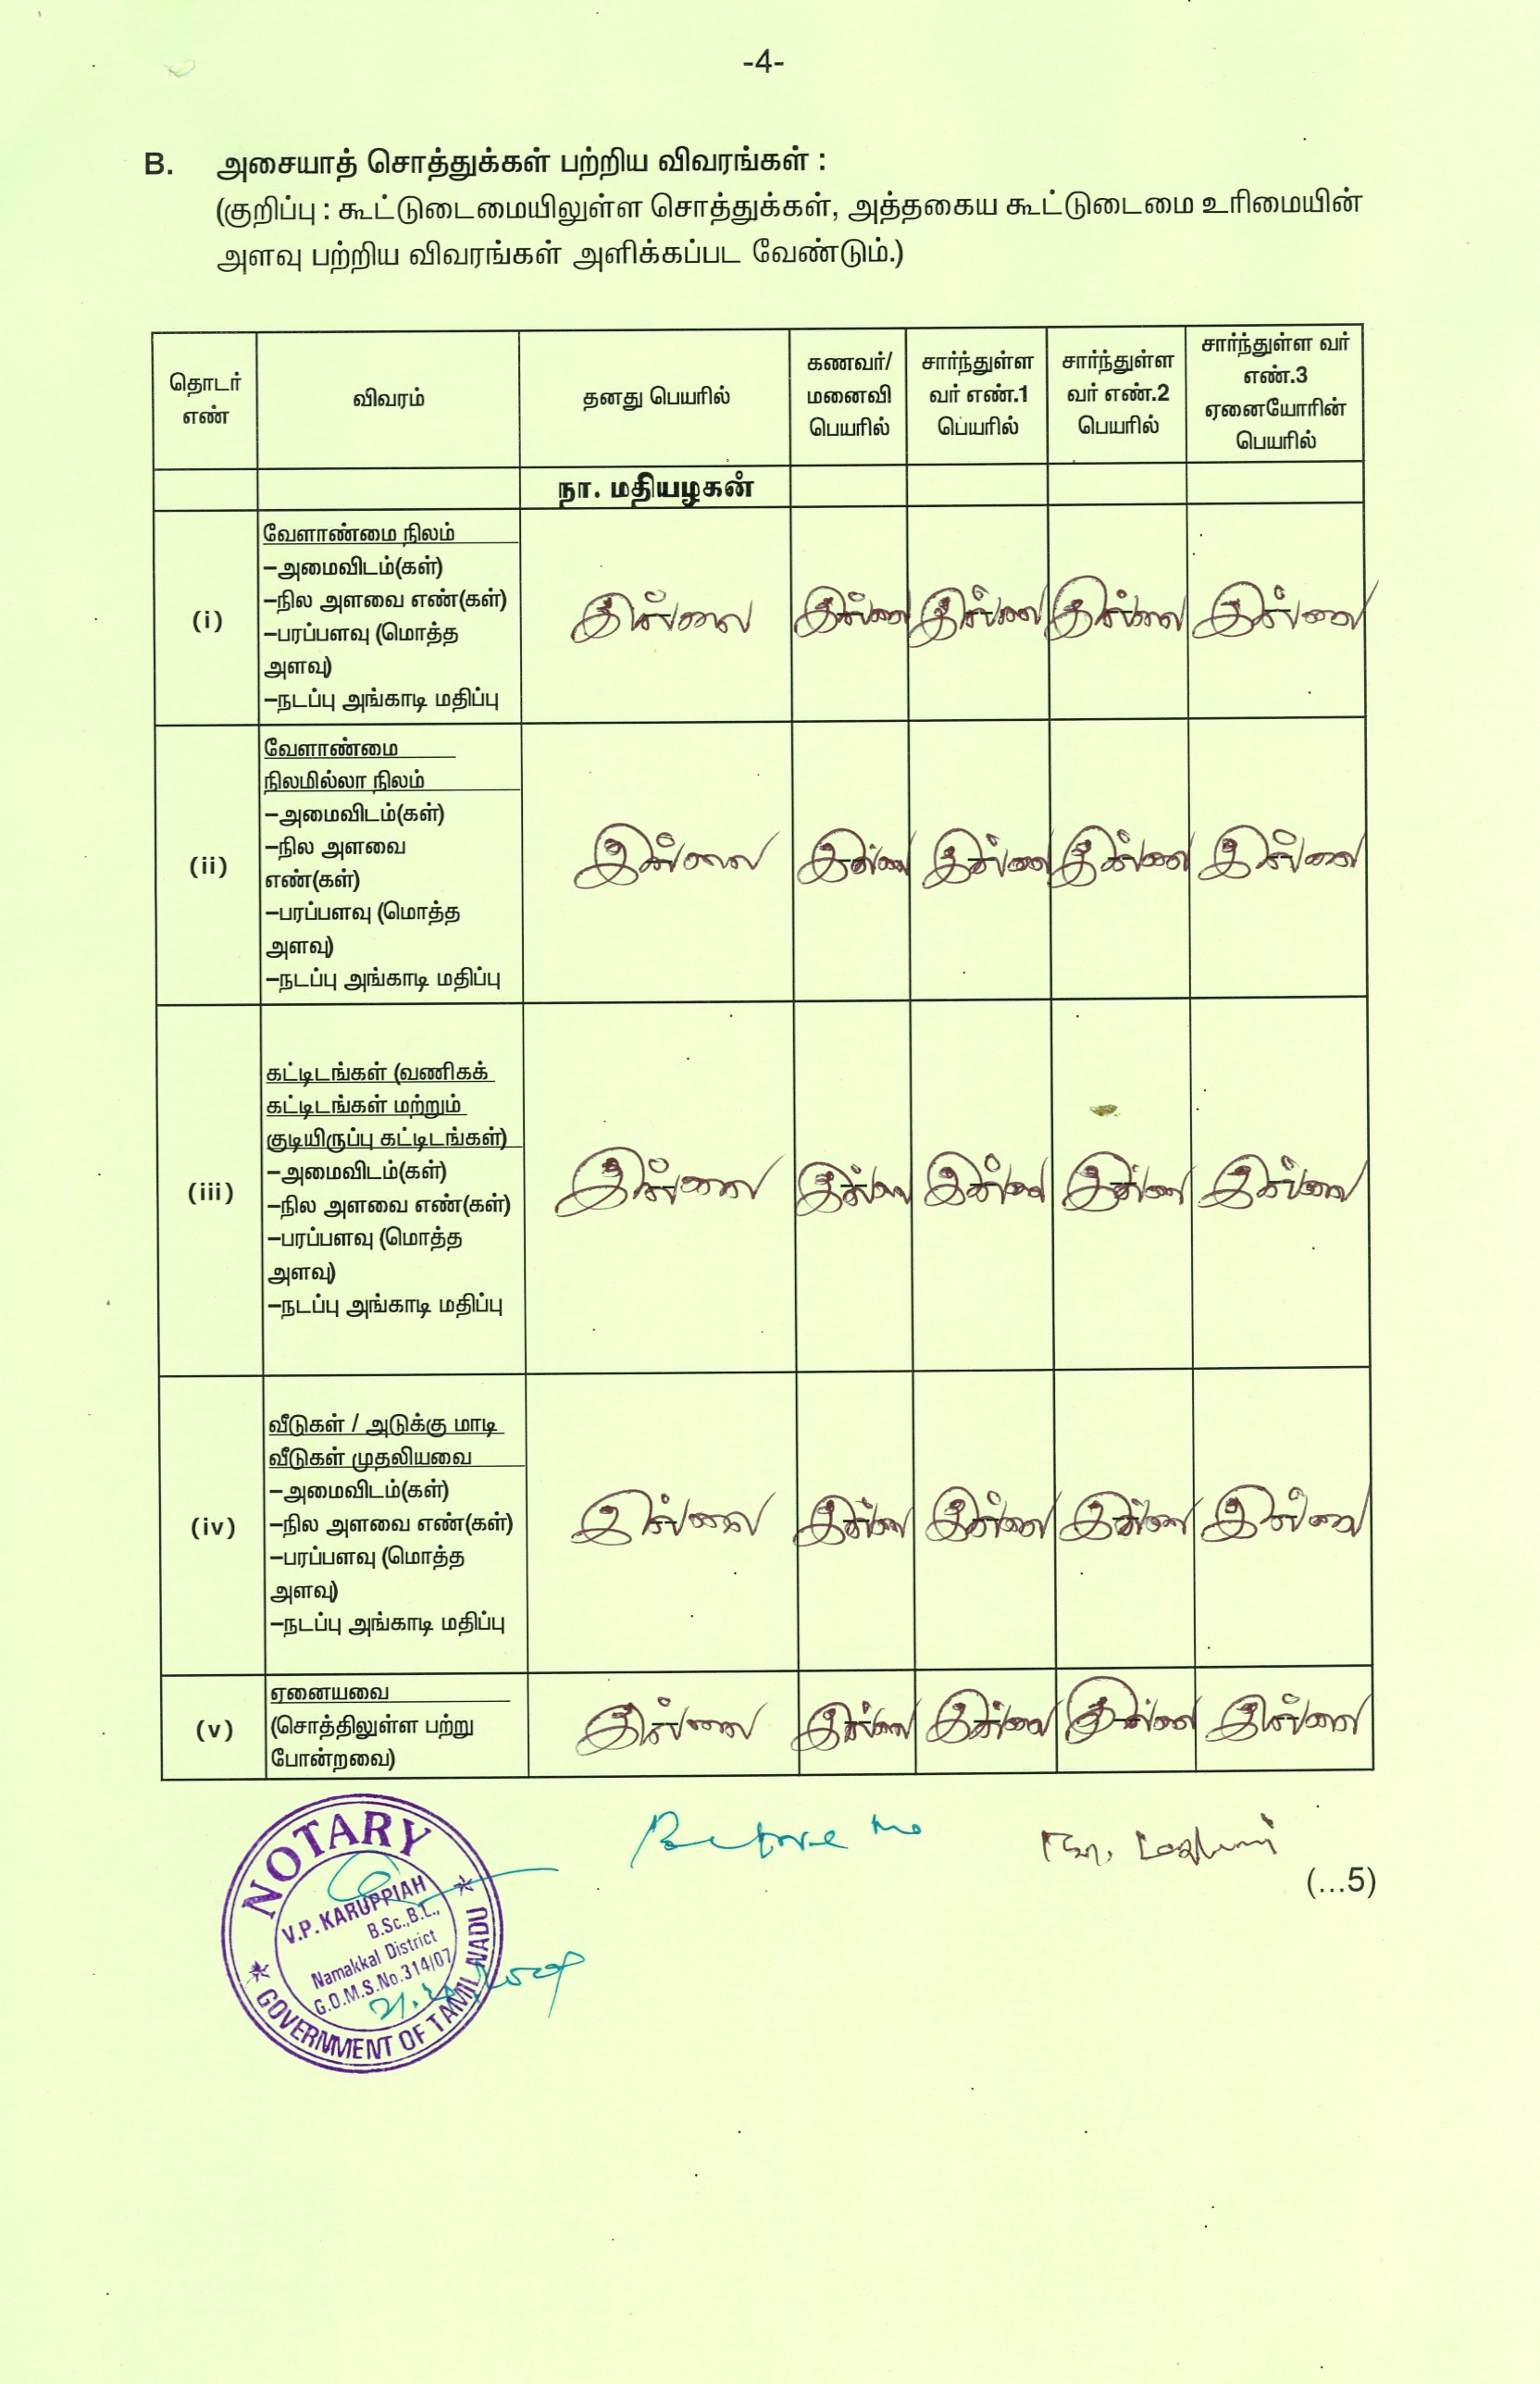 -4-
B. அசையாத் சொத்துக்கள் பற்றிய விவரங்கள் :
(குறிப்பு : கூட்டுடைமையிலுள்ள சொத்துக்கள், அத்தகைய கூட்டுடைமை உரிமையின்
அளவு பற்றிய விவரங்கள் அளிக்கப்பட வேண்டும்.)
தொடர்
எண்
விவரம்
தனது பெயரில்
கணவர்/
மனைவி
பெயரில்
சார்ந்துள்ள
வர் எண்.1
பெயரில்
சார்ந்துள்ள
வர் எண்.2
பெயரில்
சார்ந்துள்ள வர்
எண்.3
ஏனையோரின்
பெயரில்
நா. மதியழகன்
(i)
வேளாண்மை நிலம்
–அமைவிடம்(கள்)
–நில அளவை எண்(கள்)
–பரப்பளவு (மொத்த
அளவு)
–நடப்பு அங்காடி மதிப்பு
இல்லை இல்லை இல்லை இல்லை இல்லை
(ii)
வேளாண்மை
நிலமில்லா நிலம்
–அமைவிடம்(கள்)
–நில அளவை
எண்(கள்)
–பரப்பளவு (மொத்த
அளவு)
–நடப்பு அங்காடி மதிப்பு
இல்லை இல்லை இல்லை இல்லை இல்லை
(iii)
கட்டிடங்கள் (வணிகக்
கட்டிடங்கள் மற்றும்
குடியிருப்பு கட்டிடங்கள்)
–அமைவிடம்(கள்)
–நில அளவை எண்(கள்)
–பரப்பளவு (மொத்த
அளவு)
–நடப்பு அங்காடி மதிப்பு
இல்லை இல்லை இல்லை இல்லை இல்லை
(iv)
வீடுகள் / அடுக்கு மாடி
வீடுகள் முதலியவை
–அமைவிடம்(கள்)
–நில அளவை எண்(கள்)
–பரப்பளவு (மொத்த
அளவு)
–நடப்பு அங்காடி மதிப்பு
இல்லை இல்லை இல்லை இல்லை இல்லை
(v)
ஏனையவை
(சொத்திலுள்ள பற்று
போன்றவை)
இல்லை இல்லை இல்லை இல்லை இல்லை
Before me
(...5)
NOTARY
V.P. KARUPPIAH
B.Sc.,B.L.,
Namakkal District
G.O.M.S.No.314/07
GOVERNMENT OF TAMIL NADU